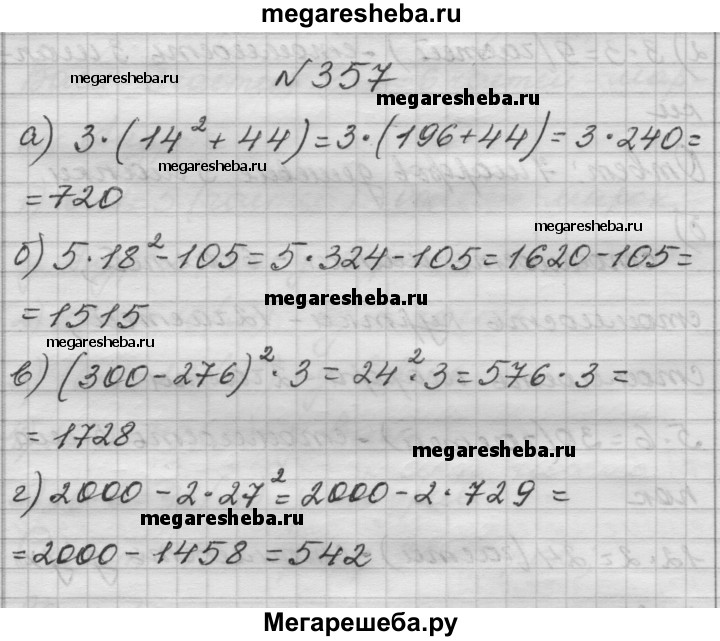 megaresheba.ru
№357
megaresheba.ru
megaresheba.ru
а) 3·(14²+44)=3·(196+44)=3·240=
megaresheba.ru
=720
megaresheba.ru
б) 5·18²-105=5·324-105=1620-105=
megaresheba.ru
=1515
megaresheba.ru
в) (300-276)²·3=24²·3=576·3=
=1728
megaresheba.ru
г) 2000-2·27²=2000-2·729=
megaresheba.ru
=2000-1458=542
Мегарешеба.ру